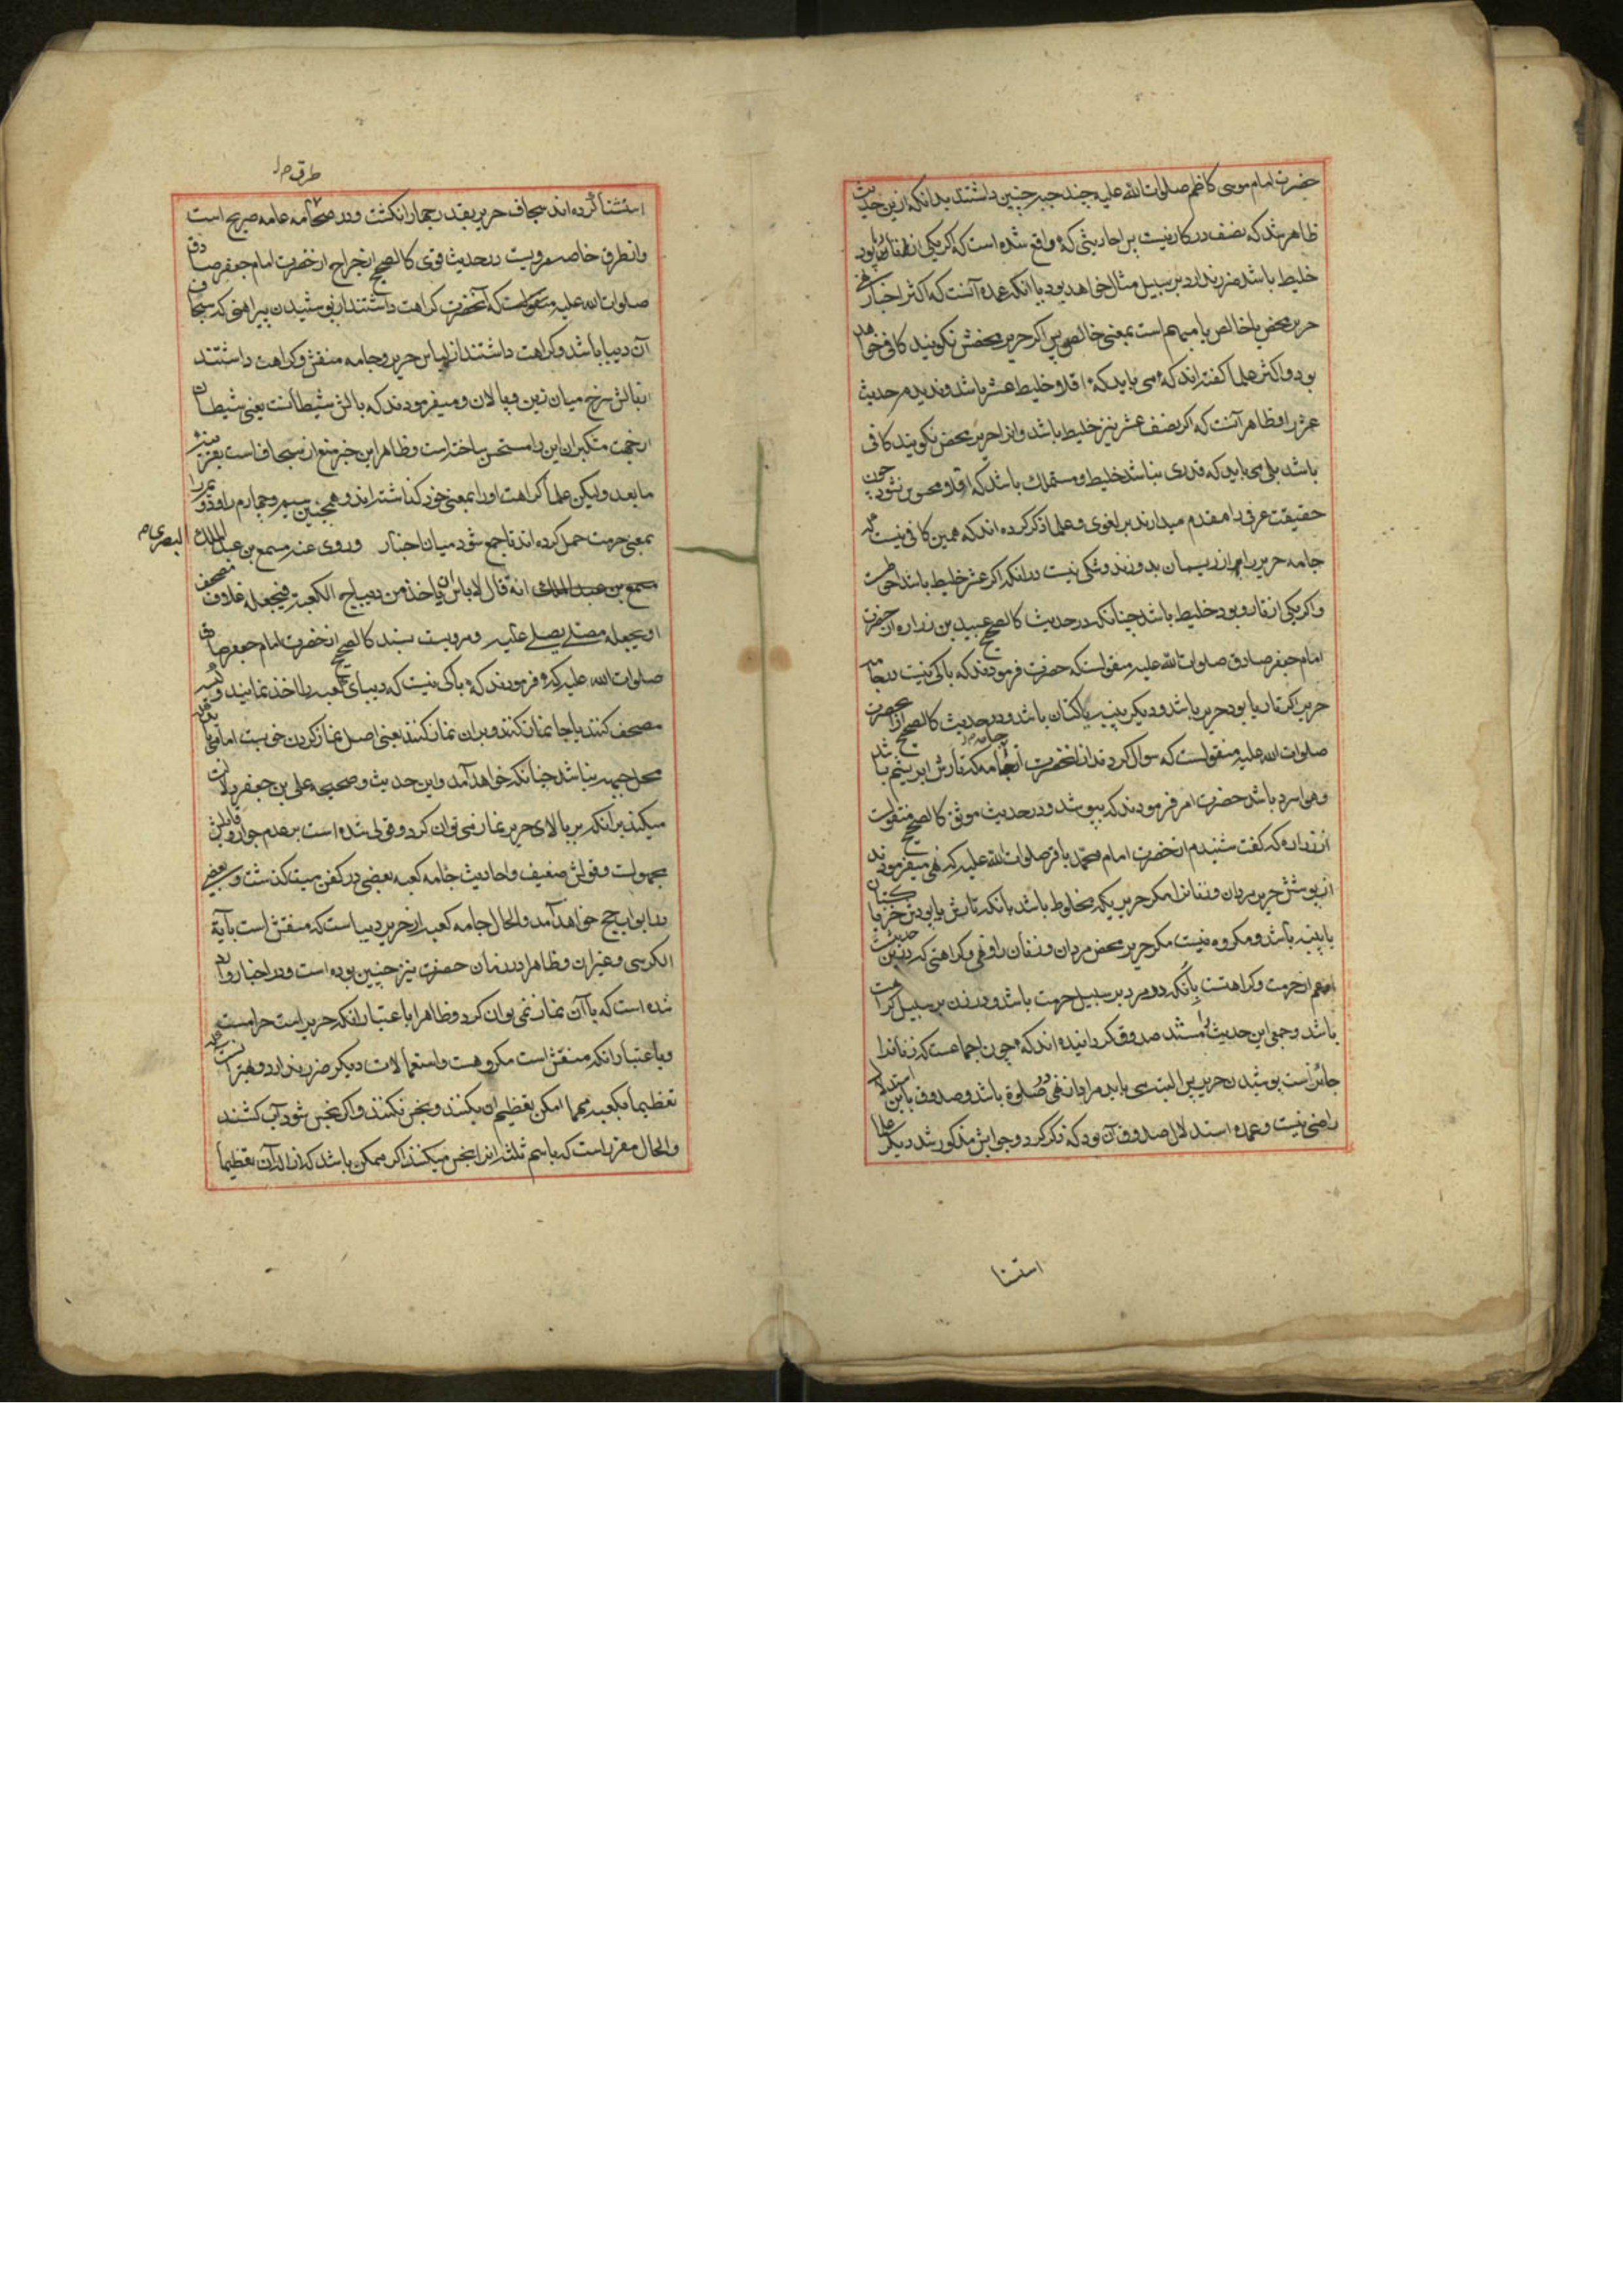 حضرت امام موسی کاظم صلوات الله علیه چند جبه چنین داشتند بدانکه ازین حدیث
ظاهر شد که نصف در کار نیست پس احادیثی که واقع شده است که اگر یکی از تار یا پود
خلیط باشد ضرر ندارد بر سبیل مثال خواهد بود با انکه عمده آنست که اکثر اخبار نهی
حریر محض یا خالص یا مبهم است بمعنی خالص پس اگر حریر محضش نکویند کافی خواهد
بود و اکثر علما کفته اند که می باید که اقلا خلیط عشر باشد و ندیدم حدیث
عشر را و ظاهر آنست که اکر نصف عشر نیز خلیط باشد و انرا حریر محض نکویند کافی
باشد بلی می باید که قدری نباشد خلیط و مستهلک باشد که اقلا محسوس نشود چون
حقیقت عرفی را مقدم میدارند بر لغوی و علما ذکر کرده اند که همین کافی نیست که
جامه حریر را از ریسمان بدوزند و شکی نیست در انکه اکر عشر خلیط باشد خوبست
و اکر یکی از تار و پود خلیط باشد چنانکه در حدیث کالصحیح عبید بن زراره از حضرت
امام جعفر صادق صلوات الله علیه منقولست که حضرت فرمودند که باکی نیست در جامه
حریر اکر تار یا پود حریر باشد و دیکر پنبه یا کتان باشد و در حدیث کالصحیح از آنحضرت
صلوات الله علیه منقولست که سوال کردند از آنحضرت از جامه که تارش ابریشم باشد
و هوا سرد باشد حضرت امر فرمودند که بپوشد و در حدیث موثق کالصحیح منقولست
از زراره که کفت شنیدم از حضرت امام محمد باقر صلوات الله علیه که نهی میفرمودند
از پوشش حریر مردان و زنانرا مکر حریریکه مخلوط باشد بانکه تارش یا پودش خز یا کتان
یا پنبه باشد و مکروه نیست مکر حریر محض مردان و زنان را و نهی و کراهتی که درین حدیث
اعم از حرمت و کراهتست بانکه در مرد بر سبیل حرمت باشد و در زن بر سبیل کراهت
باشد و جمعی این حدیث را مستند صدوق کردانیده اند که چون اجماعست که زنانرا
جایز است پوشیدن حریر پس البته می باید مراد از نهی در صلوة باشد و صدوق باین استدلال
راضی نیست و عمده استدلال صدوق آن بود که ذکر کرد و جوابش مذکور شد دیکر علما
استثنا
طرق م
استثنا کرده اند سجاف حریر بقدر چهار انکشت و در صحاح عامه صریح است
و از طرق خاصه مرویست در حدیث قوی کالصحیح از جراح از حضرت امام جعفر صادق
صلوات الله علیه منقولست که آنحضرت کراهت داشتند از پوشیدن پیراهنی که سجاف
آن دیبا باشد و کراهت داشتند از لباس حریر و جامه منقش و کراهت داشتند
از بالش سرخ میان زین و پالان و میفرمودند که بالش شیطانست یعنی شیطان
از جهت متکبران این را مستحسن ساخته است و ظاهر این خبر منع از سجاف است بقرینه
ما بعد ولیکن علما کراهت اول را بمعنی خود کذاشته اند و همچنین سیم و چهارم را و دویم را
بمعنی حرمت حمل کرده اند تا جمع شود میان اخبار و روی عنه مسمع بن عبد الملک
البصری م
مسمع بن عبد الملک انه قال لا باس ان یاخذ من دیباج الکعبة فیجعله غلاف مصحف
او یجعله مصلی یصلی علیه و مرویست بسند کالصحیح از حضرت امام جعفر صادق
صلوات الله علیه که فرمودند که باکی نیست که دیبای کعبه را اخذ نمایند و کیسه
مصحف کنند یا جا نماز کنند و بران نماز کنند یعنی اصل نماز کردن خوبست اما می باید
محل جبهه نباشد چنانکه خواهد آمد و این حدیث و صحیحه علی بن جعفر دلالت
میکند بر انکه بر بالای حریر نماز می توان کرد و قولی شده است بر عدم جواز و قایلش
مجهولست و قولش ضعیف و احادیث جامه کعبه بعضی در کفن میت کذشت و بعضی
در ابواب حج خواهد آمد و الحال جامه کعبه از حریر دیباست که منقش است بآیة
الکرسی و غیر ان و ظاهرا در زمان حضرت نیز چنین بوده است و در اخبار وارد
شده است که با آن نماز نمی توان کرد و ظاهرا باعتبار انکه حریر است حرامست
و باعتبار انکه منقش است مکروهست و استعمالات دیکر ضرر ندارد و بهتر آنست که
تعظیما لکعبه مهما امکن تعظیم ان بکنند و نجس نکنند و اکر نجس شود آب کشند
و الحال مقرر است که باسم انرا نجس میکنند اکر ممکن باشد که ازاله آن تعظیما